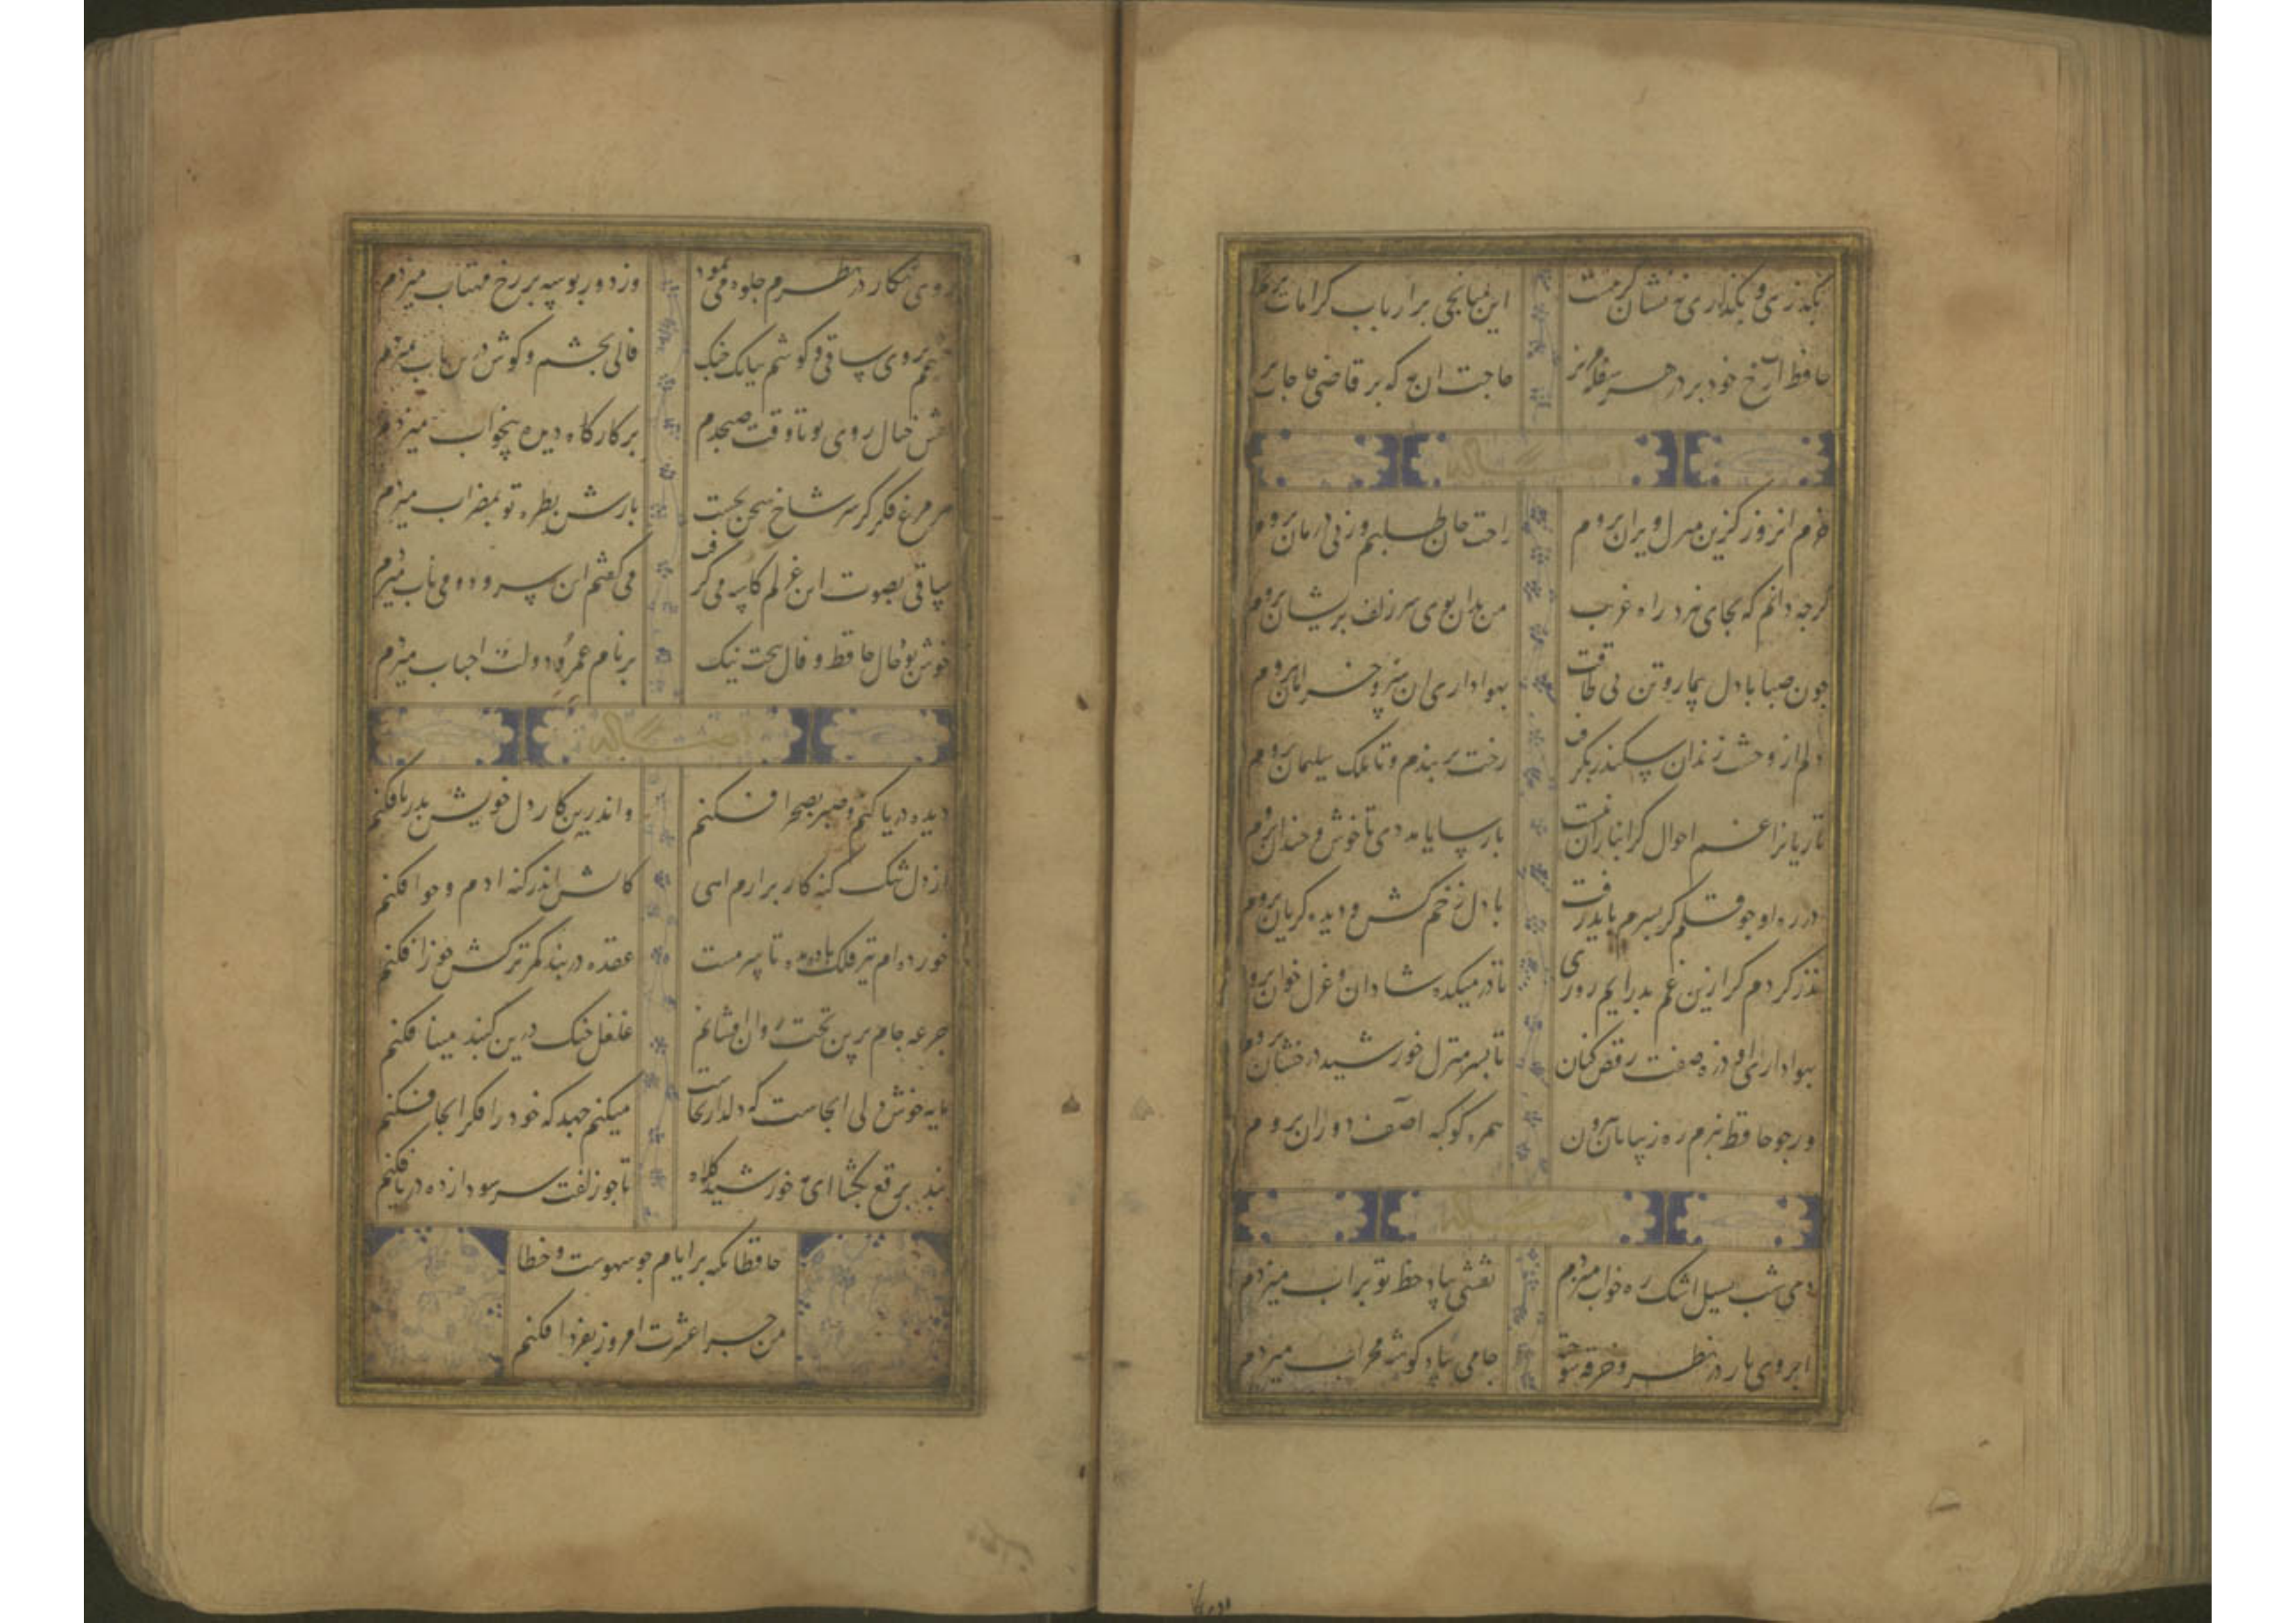 نشان کرمت این میانجی بر ارباب کرامات بریم
حافظ آب رخ خود بر در هر سفله مریز حاجت ان به که بر قاضی حاجات بریم
خرم انروز کزین منزل ویران بروم راحت جان طلبم وز پی درمان بروم
کرچه دانم که بجای نبرد راه غریب من بدان بوی سر زلف پریشان بروم
چون صبا با دل بیمار و تن بی طاقت بهواداری ان سرو خرامان بروم
دلم از وحشت زندان سکندر بکرفت رخت بربندم و تا ملک سلیمان بروم
تازیانرا غم احوال کرانباران نیست پارسایا مددی تا خوش و خندان بروم
در ره او چو قلم کر بسرم باید رفت با دل زخم کش و دیده کریان بروم
نذر کردم کر ازین غم بدر ایم روزی تا در میکده شادان و غزل خوان بروم
بهواداری او ذره صفت رقص کنان تا بسر منزل خورشید درخشان بروم
ور چو حافظ نبرم ره ز بیابان بیرون همره کوکبه اصف دوران بروم
دی شب بسیل اشک ره خواب میزدم نقشی بیاد خط تو بر اب میزدم
ابروی یار در نظر و خرقه سوخته جامی بیاد کوشه محراب میزدم
روی نکار در نظرم جلوه می نمود وز دور بوسه بر رخ مهتاب میزدم
چشمم بروی ساقی و کوشم ببانک چنک فالی بچشم و کوش درین باب میزدم
نقش خیال روی تو تا وقت صبحدم بر کارکاه دیده بیخواب میزدم
هر مرغ فکر کز سر شاخ سخن بجست بازش بطره تو بمضراب میزدم
ساقی بصوت این غزلم کاسه می کرفت می کفتم این سرود و می ناب میزدم
خوش بود حال حافظ و فال بخت نیک بر نام عمر و دولت احباب میزدم
دیده دریا کنم و صبر بصحرا فکنم و اندرین کار دل خویش بدریا فکنم
از دل تنک کنه کار برارم اهی کاتش اندر کنه ادم و حوا فکنم
خورده ام تیر فلک باده بده تا سرمست عقده در بند کمر ترکش جوزا فکنم
جرعه جام برین تخت روان افشانم غلغل چنک درین کنبد مینا فکنم
مایه خوش دلی انجاست که دلدار انجاست میکنم جهد که خود را مکر انجا فکنم
بند برقع بکشا ای مه خورشید کلاه تا چو زلفت سر سودازده در پا فکنم
حافظا تکیه بر ایام چو سهوست و خطا
من چرا عشرت امروز بفردا فکنم